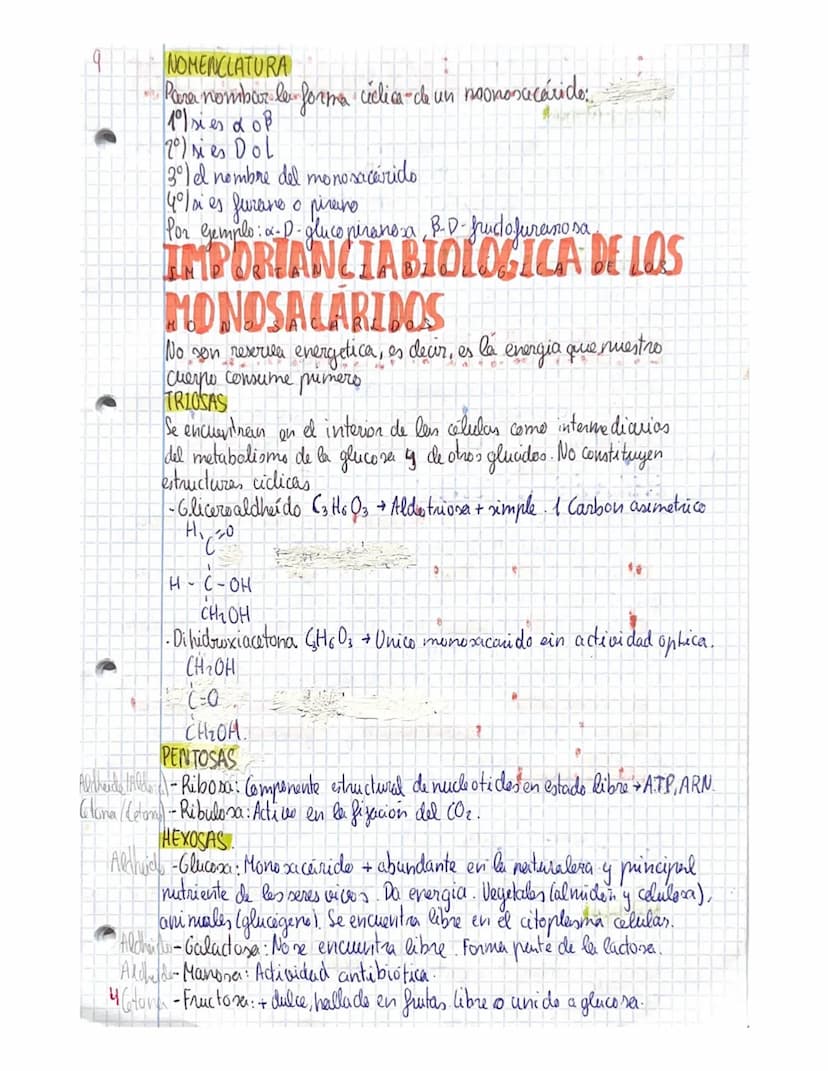 9
NOMENCLATURA
Para nombrar la forma cíclica de un monosacárido:
1º) si es α o β
2º) si es D o L
3º) el nombre del monosacárido
4º) si es furano o pirano
Por ejemplo: α-D-glucopiranosa, β-D-fructofuranosa.
IMPORTANCIA BIOLÓGICA DE LOS
MONOSACÁRIDOS
No son reserva energetica, es decir, es la energía que nuestro
cuerpo consume primero
TRIOSAS
Se encuentran en el interior de las células como intermediarios
del metabolismo de la glucosa y de otros glucidos. No constituyen
estructuras cíclicas
-Gliceroaldheído C3H6O3 → Aldotriosa + simple. 1 Carbon asimetrico
H =O
C
H - C - OH
CH2OH
· Dihidroxiacetona C3H6O3 → Unico monosacarido sin actividad optica.
CH2OH
C=O
CH2OH.
PENTOSAS
-Ribosa: Componente estructural de nucleotidos en estado libre → ATP, ARN.
Cetona (Cetona) -Ribulosa: Activo en la fijación del CO2.
HEXOSAS.
-Glucosa: Monosacárido + abundante en la naturaleza y principal
nutriente de los seres vivos. Da energia. Vegetales (almidón y celulosa),
animales (glucógeno). Se encuentra libre en el citoplasma celular.
-Galactosa: No se encuentra libre. Forma parte de la lactosa.
-Manosa: Actividad antibiótica.
4 Cetona -Fructosa: + dulce, hallada en frutas libre o unido a glucosa.